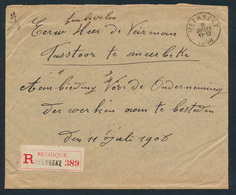 Eerw Heer De Veirman
Pastoor te Meerbeke
Aanbieding Voor de Onderneming
der werken aan te besteden
den 11 Juli 1908
MEERBEKE
BELGIQUE
R MEERBEKE 389